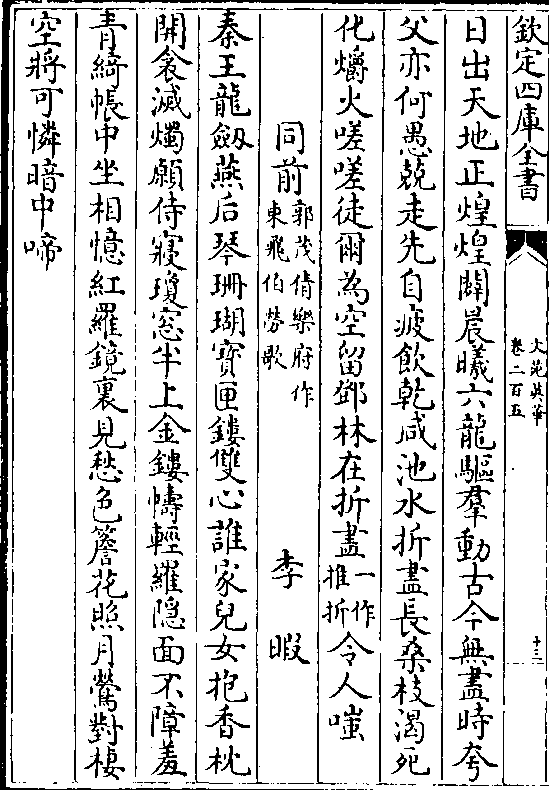 欽定四庫全書
文苑英華
卷二百五
十三
日出天地正煌煌闢晨曦六龍驅羣動古今無盡時夸
父亦何愚兢走先自疲飲乾咸池水折盡長桑枝渴死
化爝火嗟嗟徒爾為空留鄧林在折盡一作推折令人嗤
同前郭茂倩樂府作東飛伯勞歌 李暇
秦王龍劔燕后琴珊瑚寶匣鏤雙心誰家兒女抱香枕
開衾滅燭願侍寢瓊窓半上金鏤幬輕羅隠面不障羞
青綺帳中坐相憶紅羅鏡裏見愁色簷花照月鶯對棲
空將可憐暗中啼